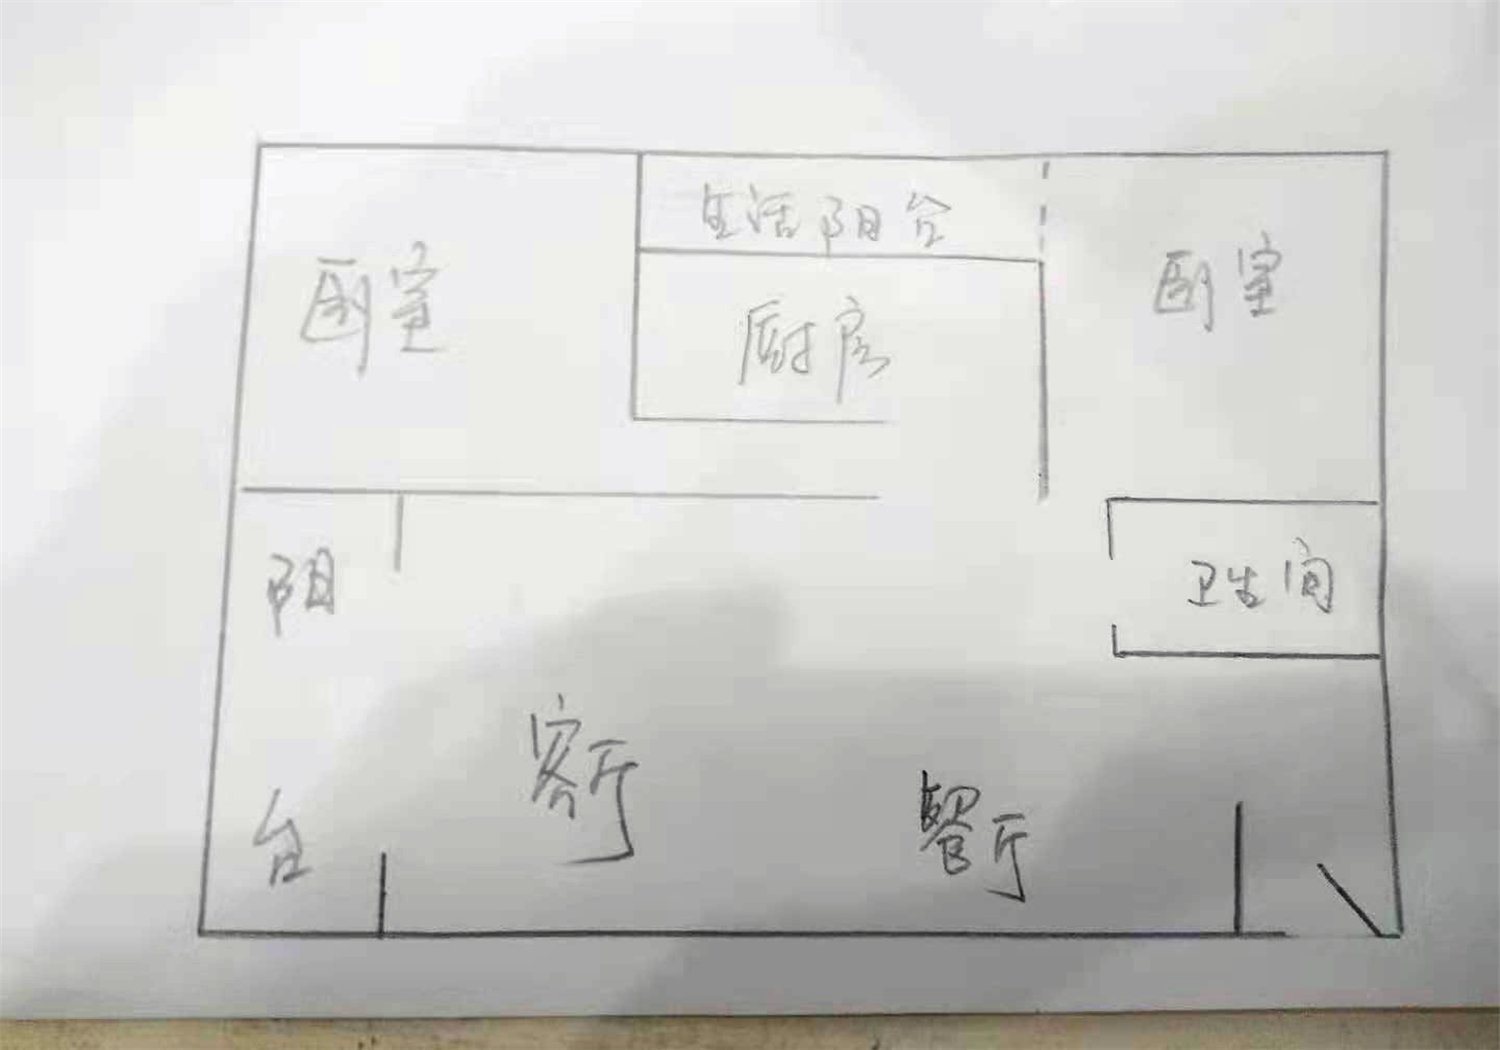 生活阳台
卧室
厨房
卧室
阳台
卫生间
客厅
餐厅